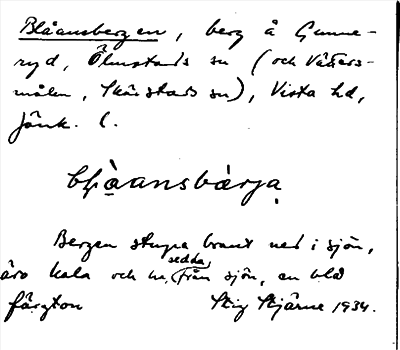 Blåansbergen, berg å Gunne-
ryd, Ölmstads sn (och Vätters-
målen, Skärstads sn), Vista hd,
Jönk. l.
blåansbärja
Bergen stupa brant ned i sjön,
äro kala och ha, sedda från sjön, en blå
färgton Stig Stjärne 1934.